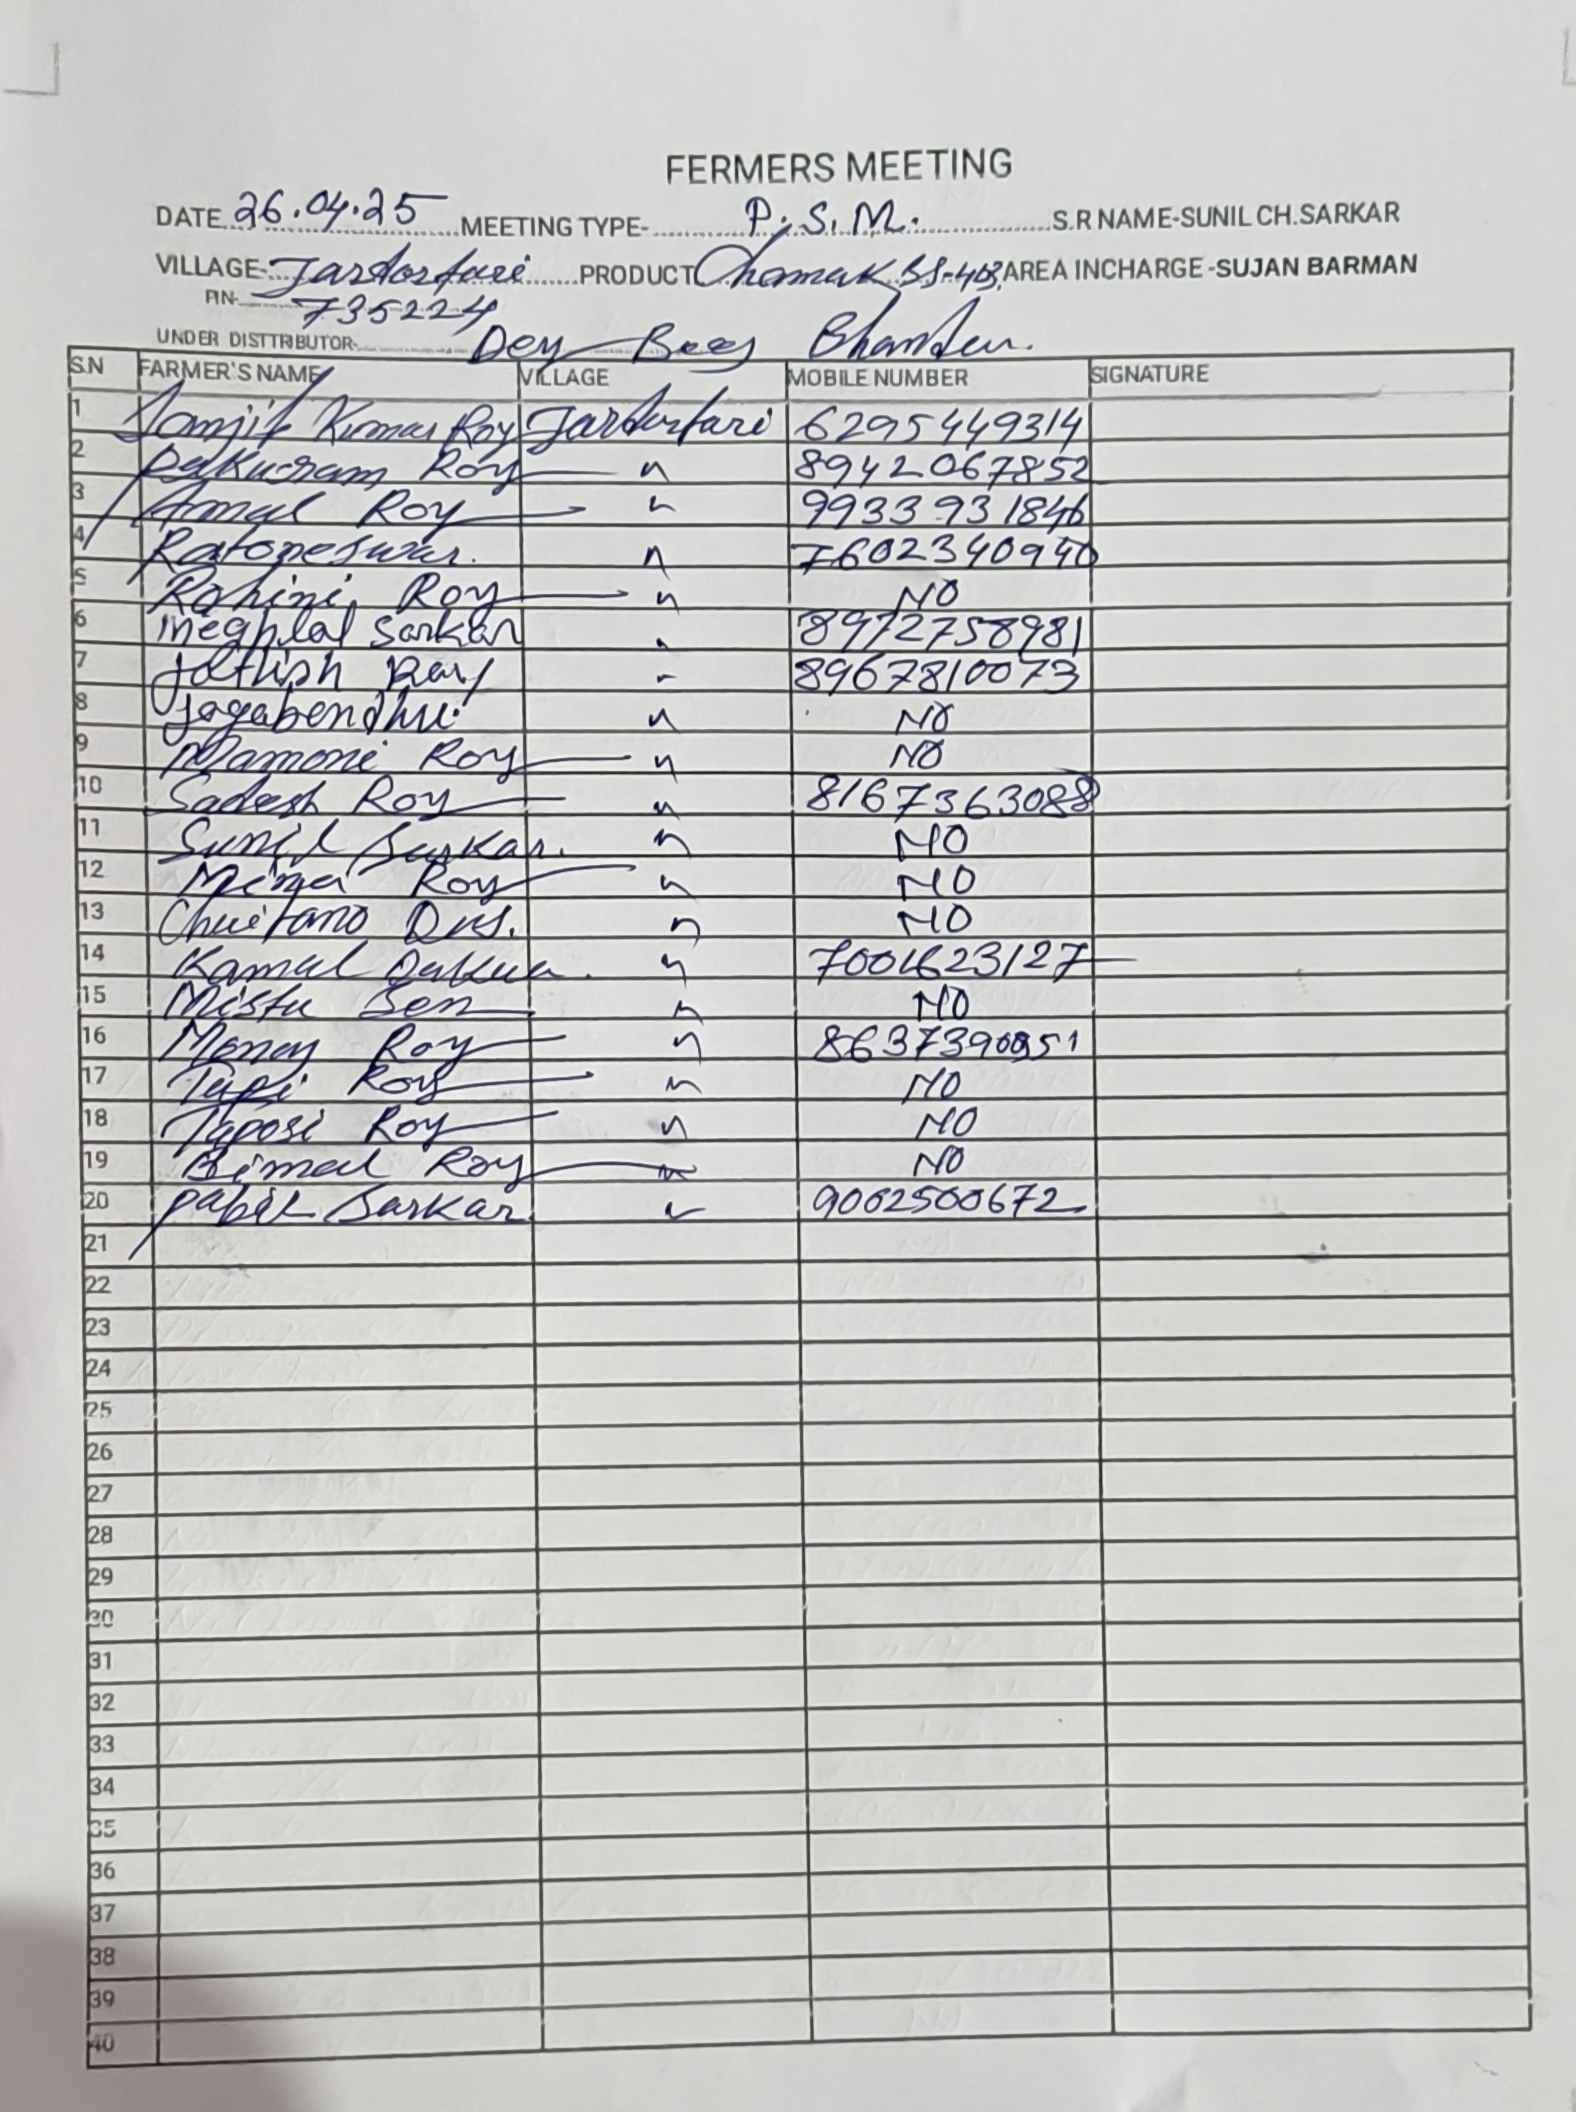 FERMERS MEETING
DATE 26.04.25 MEETING TYPE- P.S.M. S.R NAME-SUNIL CH.SARKAR
VILLAGE- PRODUCT Chamak AREA INCHARGE-SUJAN BARMAN
PIN- 735224
UNDER DISTTRIBUTOR- Dey Beej Bhander.
S.N FARMER'S NAME VILLAGE MOBILE NUMBER SIGNATURE
1 Kumar Roy 6295449314
2 Roy 〃 8942067852
3 Amal Roy 〃 9933931846
4 Ratoneswar. 〃
5 Rohini Roy 〃 NO
6 meghlal Sarkar 〃 8972758981
7 Roy 〃 8967810073
8 Jogabendhu 〃 NO
9 Mamoni Roy 〃 NO
10 Sadesh Roy 〃 8167363088
11 Sunil Sarkar. 〃 NO
12 Mina Roy 〃 NO
13 Das. 〃 NO
14 Kamal Dakua. 〃
15 Mistu Sen 〃 NO
16 Roy 〃
17 Tapi Roy 〃 NO
18 Taposi Roy 〃 NO
19 Bimal Roy 〃 NO
20 Sarkar 〃 9002500672
21
22
23
24
25
26
27
28
29
30
31
32
33
34
35
36
37
38
39
40